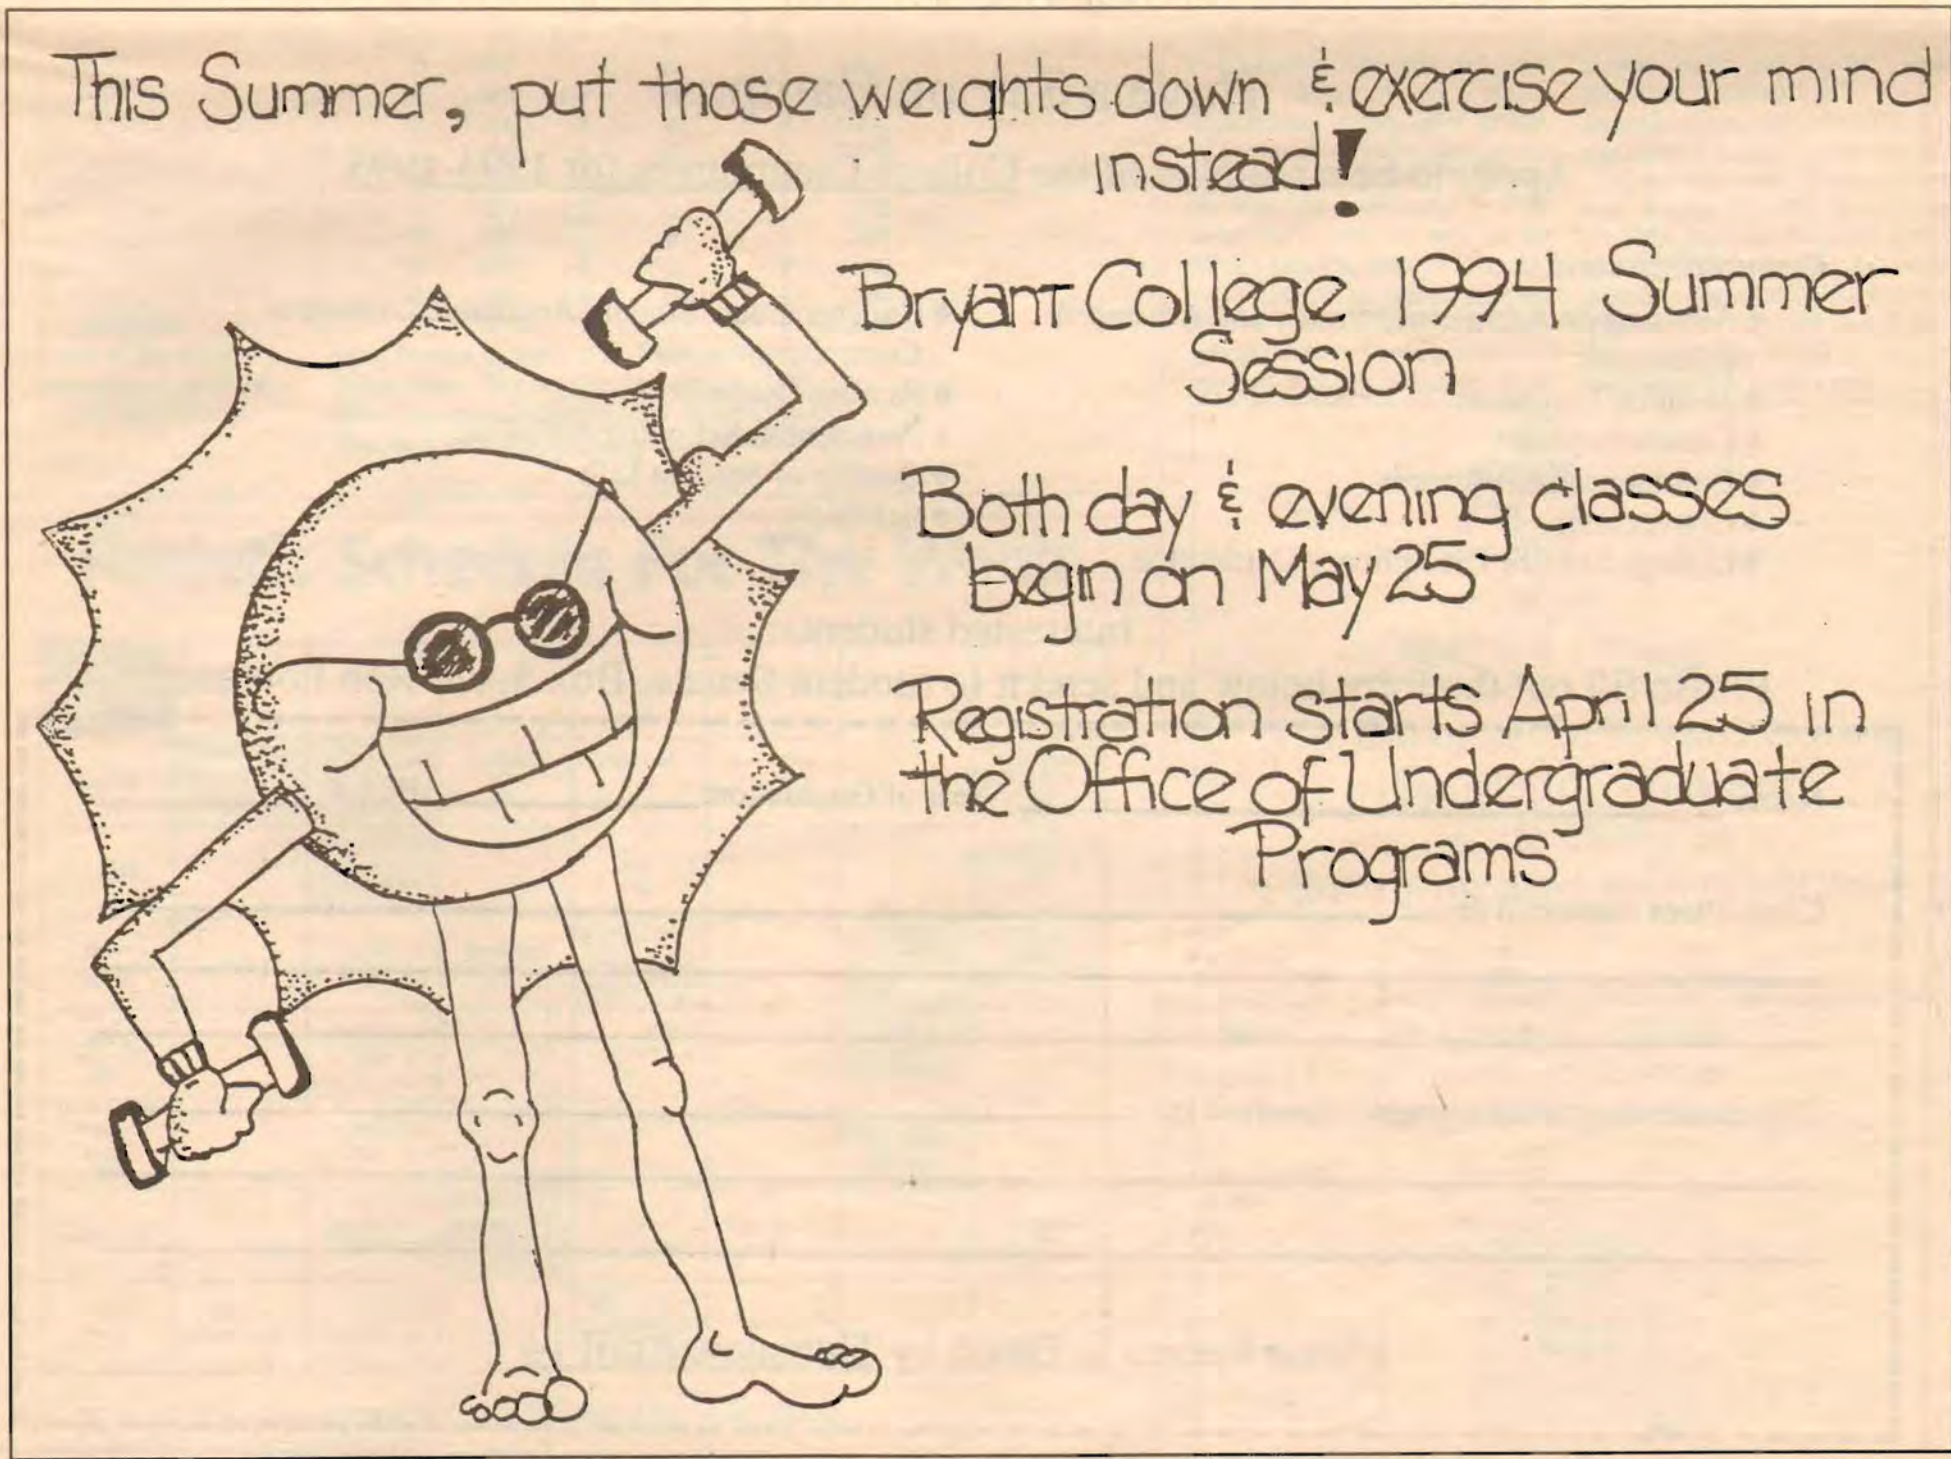 This Summer, put those weights down & exercise your mind
instead!
Bryant College 1994 Summer
Session
Both day & evening classes
begin on May 25
Registration starts April 25 in
the Office of Undergraduate
Programs